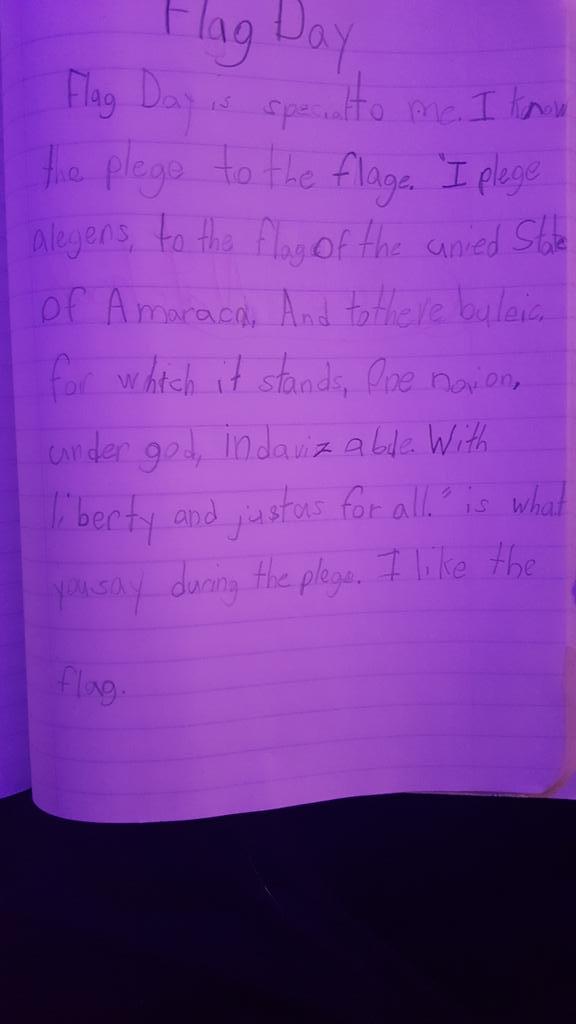 Flag Day
Flag Day is special to me. I know
the plege to the flage. "I plege
alegens, to the flag of the unied State
of Amaraca, And to there buleic,
for which it stands, One naion,
under god, indavizable. With
liberty and justus for all." is what
you say during the plege. I like the
flag.